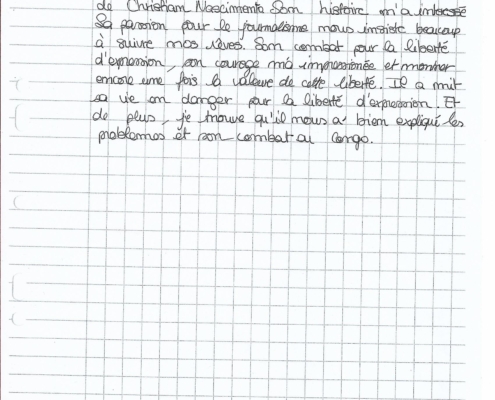 de Christham Nascimento Son histoire m'a interessée
Sa passion pour le journalisme nous insiste beaucoup
à suivre nos rêves. Son combat pour la liberté
d'expression, son courage m'a impressionée et montrer
encore une fois la valeur de cette liberté. Il a mit
sa vie en danger pour la liberté d'expression. Et
de plus, je trouve qu'il nous a bien expliqué les
problèmes et son combat au Congo.